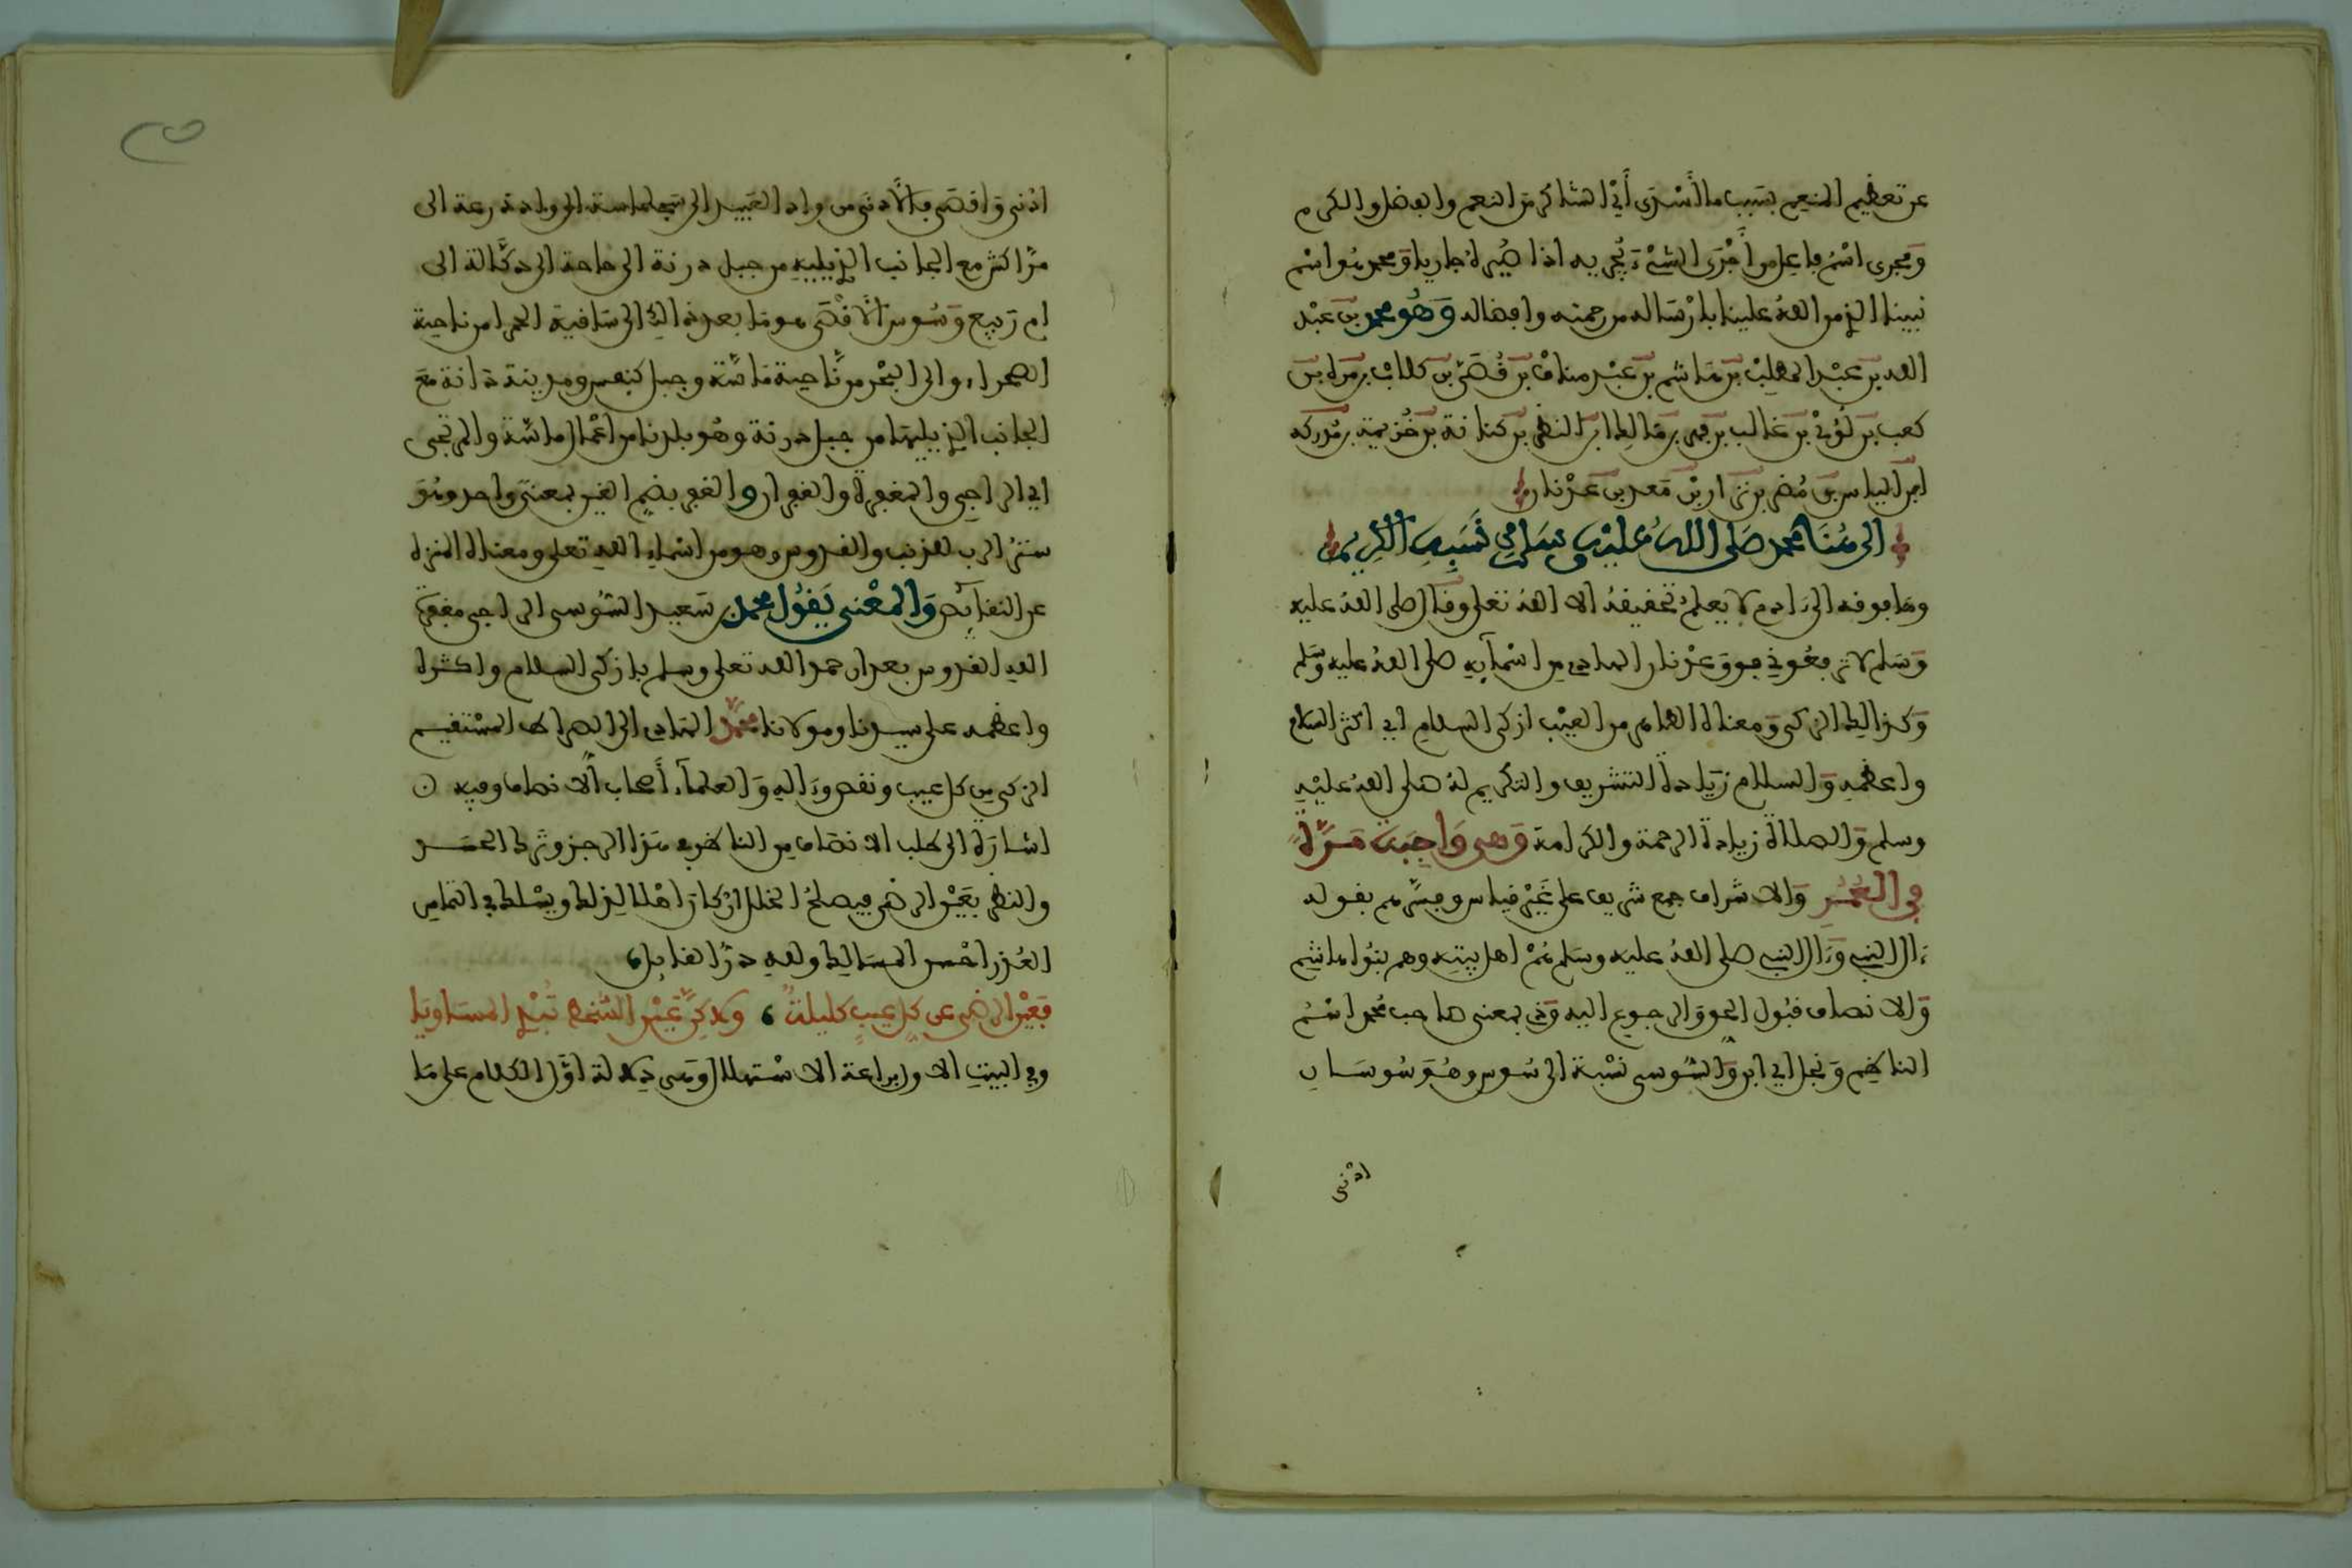 عن تعظيم المنعم بسبب ما أسرى أي الشاكر من النعم والفضل والكرم
ومجرى اسم فاعل من أجرى الشيء يجريه اذا صيره جاريا ومحمد هو اسم
نبينا الذي من الله علينا بارساله من رحمته وافضاله وهو محمد بن عبد
الله بن عبد المطلب بن هاشم بن عبد مناف بن قصي بن كلاب بن مرة بن
كعب بن لؤي بن غالب بن فهر بن مالك ابن النضر بن كنانة بن خزيمة بن مدركة
ابن الياس بن مضر بن نزار بن معد بن عدنان
الى هنا محمد صلى الله عليه وسلم في نسبه الكريم
وما فوقه الى ءادم لا يعلم تحقيقه الا الله تعلى وقال صلى الله عليه
وسلم لا ترفعوني فوق عدنان الهادي من اسمآيه صلى الله عليه وسلم
وكذلك الزكي ومعناه الطاهر من العيب ازكى السلام اي اكثر السلام
واعظمه والسلام زيادة التشريف والتكريم له صلى الله عليه
وسلم والصلاة زيادة الرحمة والكرامة وهي واجبة مرة
في العمر والاشراف جمع شريف على غير قياس وفسرهم بقوله
ءال النبي وءال النبي صلى الله عليه وسلم هم اهل بيته وهم بنوا هاشم
والانصاف قبول الحق والرجوع اليه وذي بمعنى صاحب محمد اسم
الناظم ونجل اي ابن والسوسي نسبة الى سوس وهو سوسان
ادنى
ادنى واقصى فالأدنى من واد العبيد الى سجلماسة الى وادة رعة الى
مراكش مع الجانب الذي يليه من جبل درنة الى حاحة الى دكالة الى
ام ربيع وسوس الأقصى هو ما بعد ذالك الى ساقية الحمرا من ناحية
الصحراء والى البحر من ناحية ماسة وجبل كنفيس ومدينة دانة مع
الجانب الذي يليها من جبل درنة وهو بلدنا من اعمال ماسة والمرتجى
اي الراجي والمغفرة والغفران والغفر بضم الغين بمعنى واحد وهو
ستر الرب الذنب والقدوس وهو من اسماء الله تعلى ومعناه المنزه
عن النقايص والمعنى يقول محمد بن سعيد السوسي الراجي مغفرة
الله القدوس بعد ان حمد الله تعلى وسلم بازكى السلام واكثره
واعظمه على سيدنا ومولانا محمد الهادي الى الصراط المستقيم
الزكي من كل عيب ونقص وءاله والعلمآء أصحاب الانصاف وفيه
اشارة الى طلب الانصاف من الناظر في هذا الرجز وترك الحسد
والنظر بعين الرضى فيصلح الخلل ان كان اهلا لذلك ويسلك في التماس
العذر احسن المسالك ولله در القايل
فعين الرضى عن كل عيب كليلة ولاكن عين السخط تبدي المساويا
وفي البيت الاول براعة الاستهلال وهي دلالة اول الكلام على ما